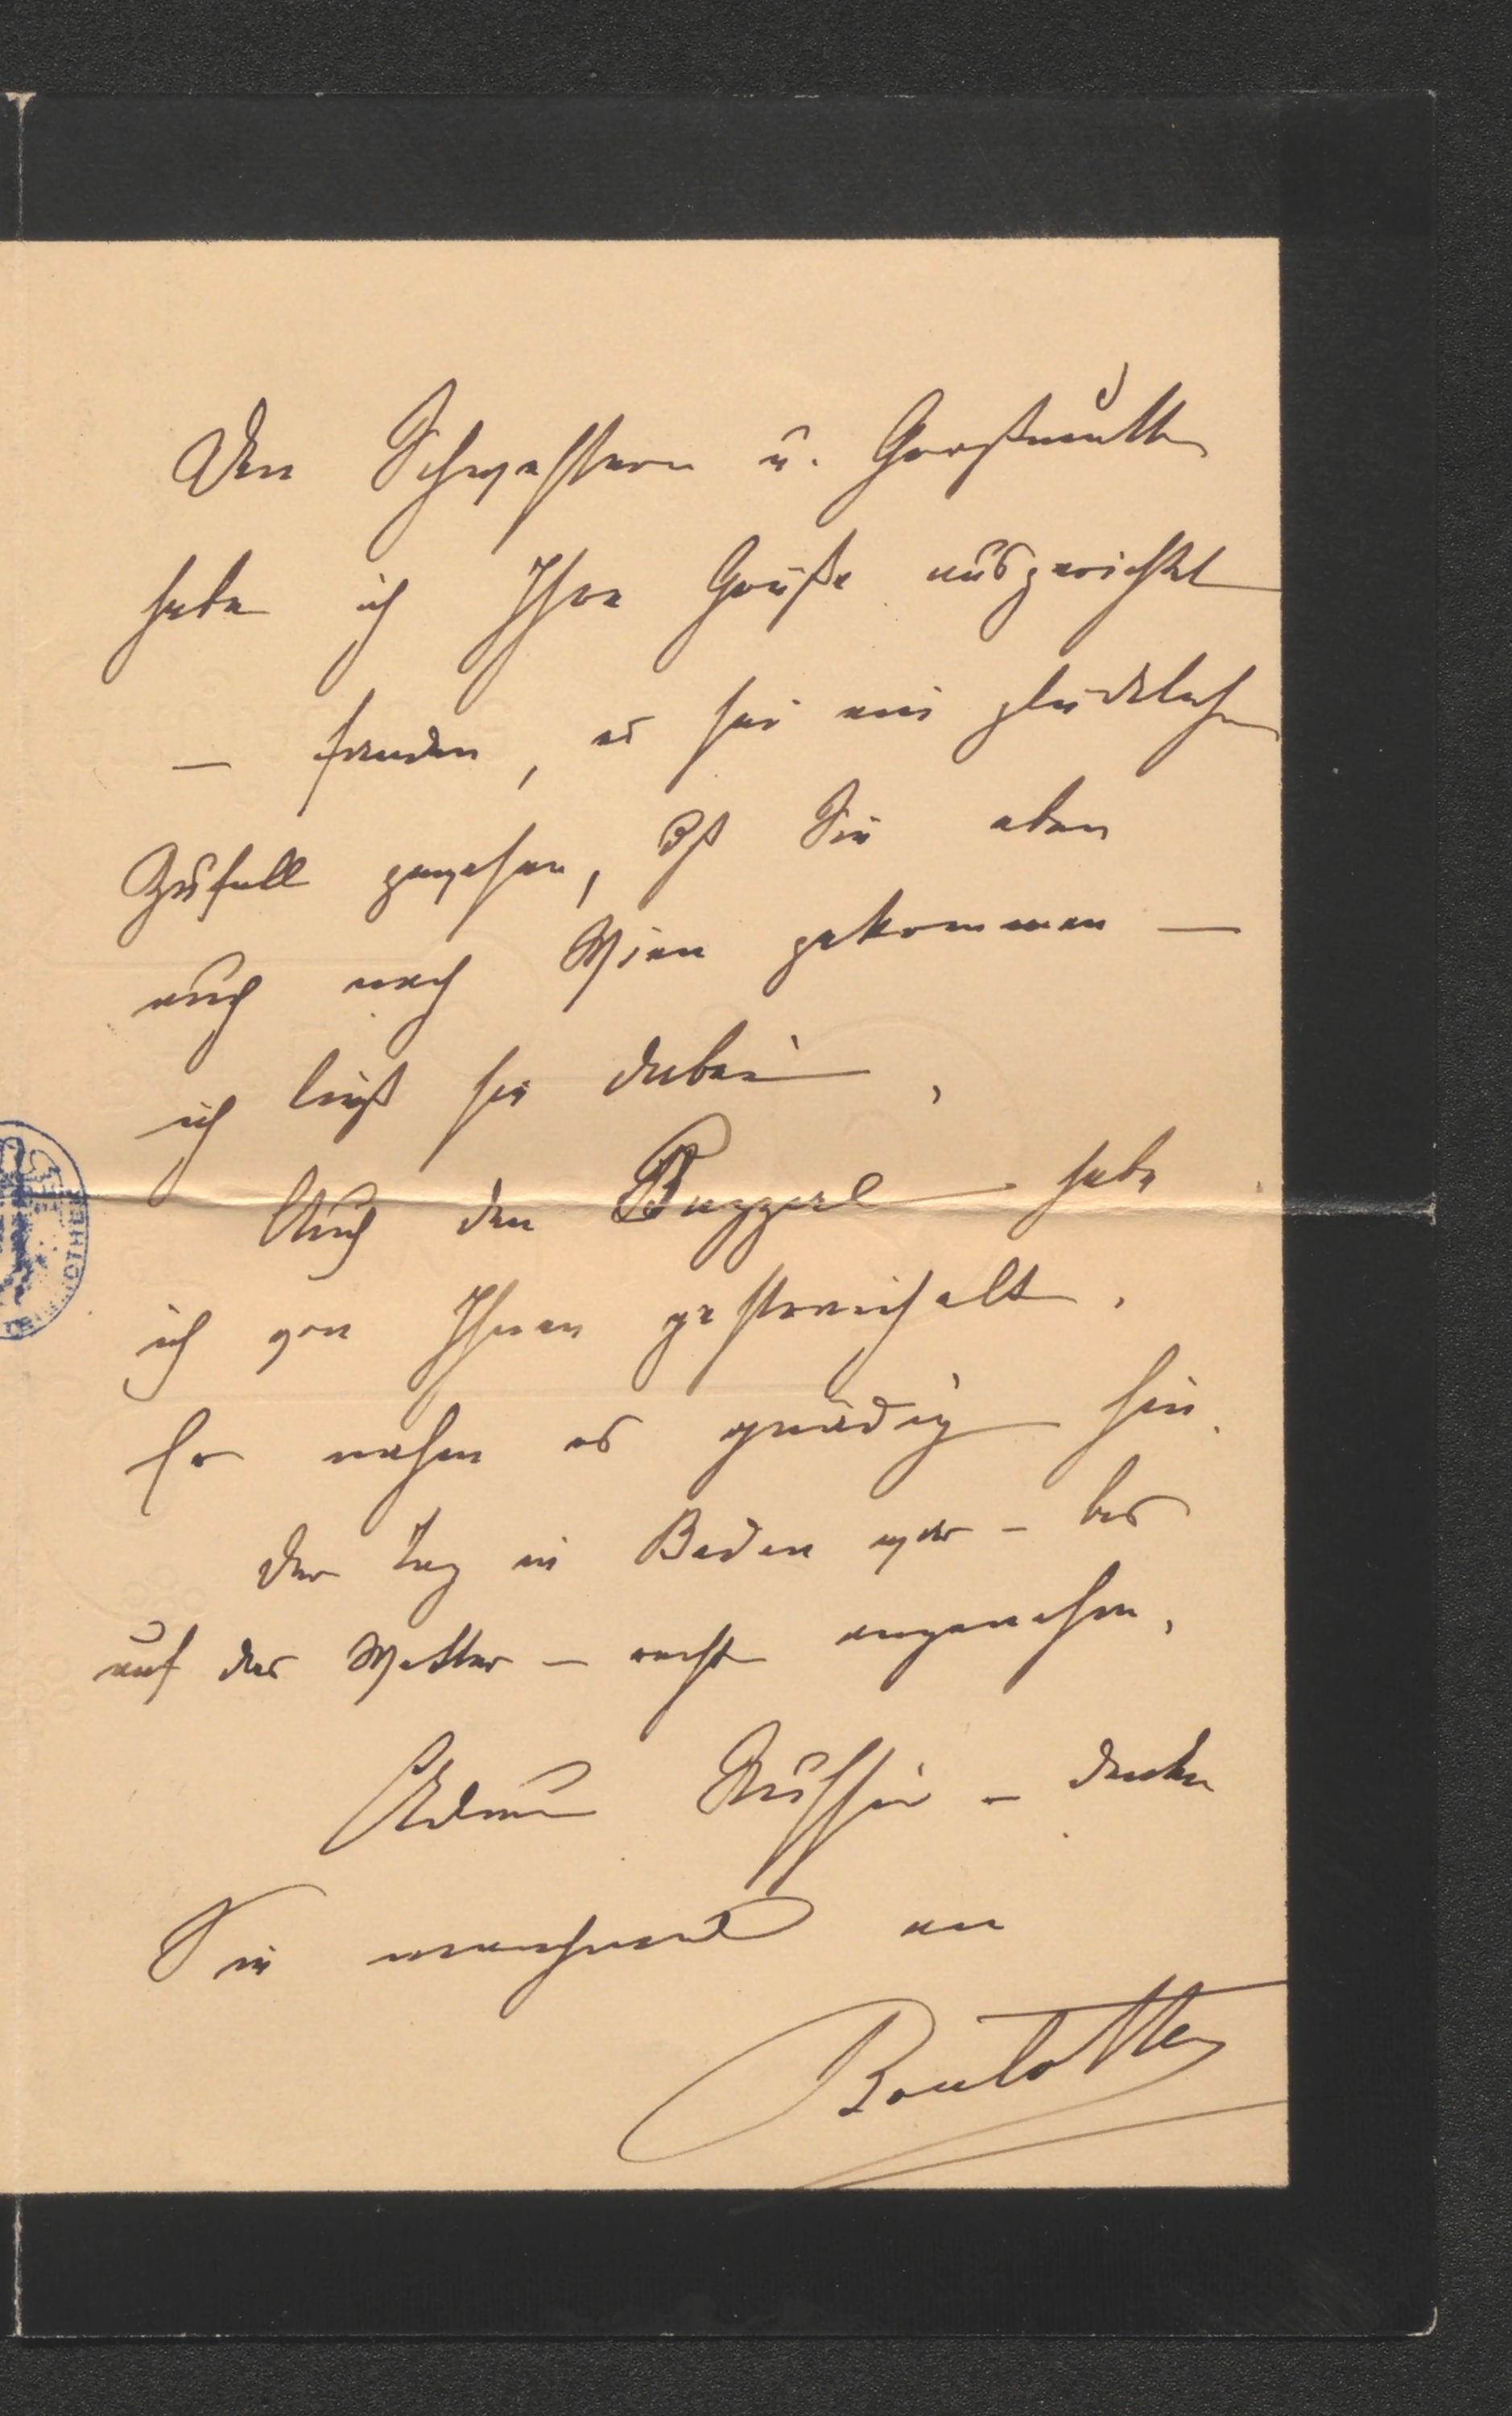 Den Schwestern u. Großmutter
habe ich Ihre Grüße ausgerichtet
– fanden, es sei ein glücklicher
Zufall gewesen, dß Sie eben
auch nach Wien gekommen –
ich ließ sie dabei.
Auch den Buzzerl habe
ich von Ihnen gestreichelt.
Er nahm es gnädig hin.
Der Tag in Baden war – bis
auf das Wetter – recht angenehm.
Adieu – denken
Sie manchmal an
Boulotte